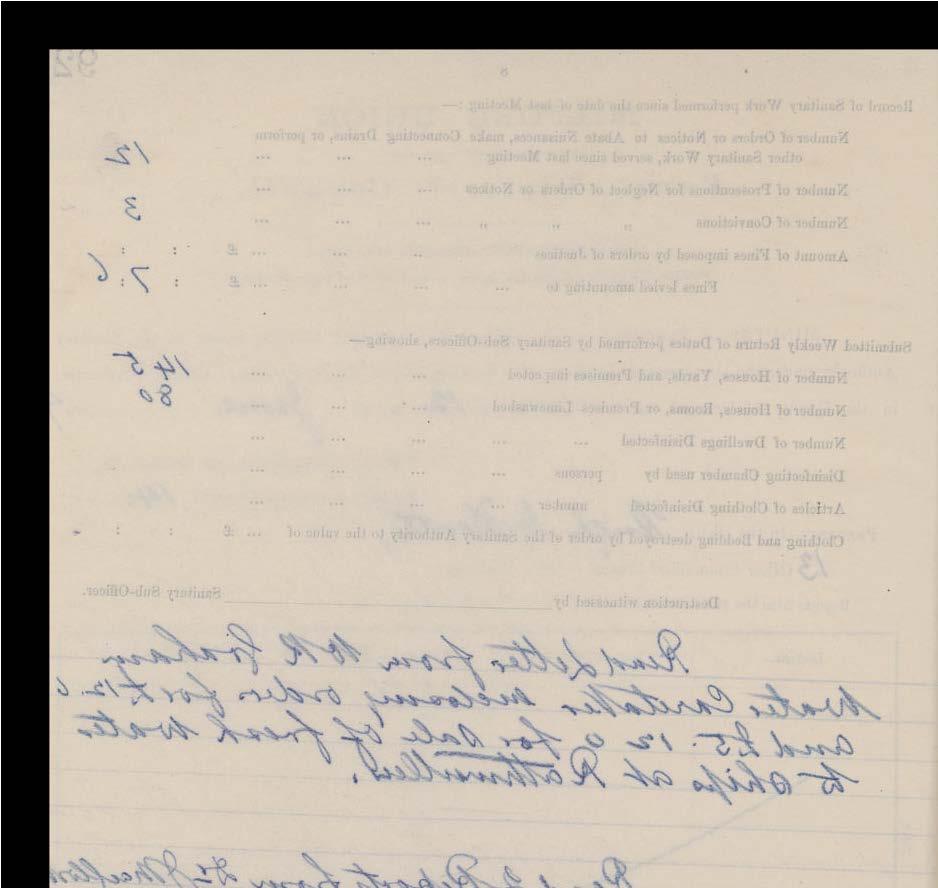 92
8
Record of Sanitary Work performed since the date of last Meeting :—
Number of Orders or Notices to Abate Nuisances, make Connecting Drains, or perform
other Sanitary Work, served since last Meeting ... ... ... 12
Number of Prosecutions for Neglect of Orders or Notices ... ... ... 3
Number of Convictions " " " ... ... ...
Amount of Fines imposed by orders of Justices ... ... ... £ : :
Fines levied amounting to ... ... ... ... £ : 7 : 6
Submitted Weekly Return of Duties performed by Sanitary Sub-Officers, showing—
Number of Houses, Yards, and Premises inspected ... ... ... 145
Number of Houses, Rooms, or Premises Limewashed ... ... ... 80
Number of Dwellings Disinfected ... ... ... ... ...
Disinfecting Chamber used by persons ... ... ... ...
Articles of Clothing Disinfected number ... ... ... ...
Clothing and Bedding destroyed by order of the Sanitary Authority to the value of ... £ : :
Destruction witnessed by Sanitary Sub-Officer.
Read letter from W R Graham
Water Caretaker order for £12. 6
and £5. 12 0 for sale of fresh water
to ships at Rathmullen.
Reports from Dr